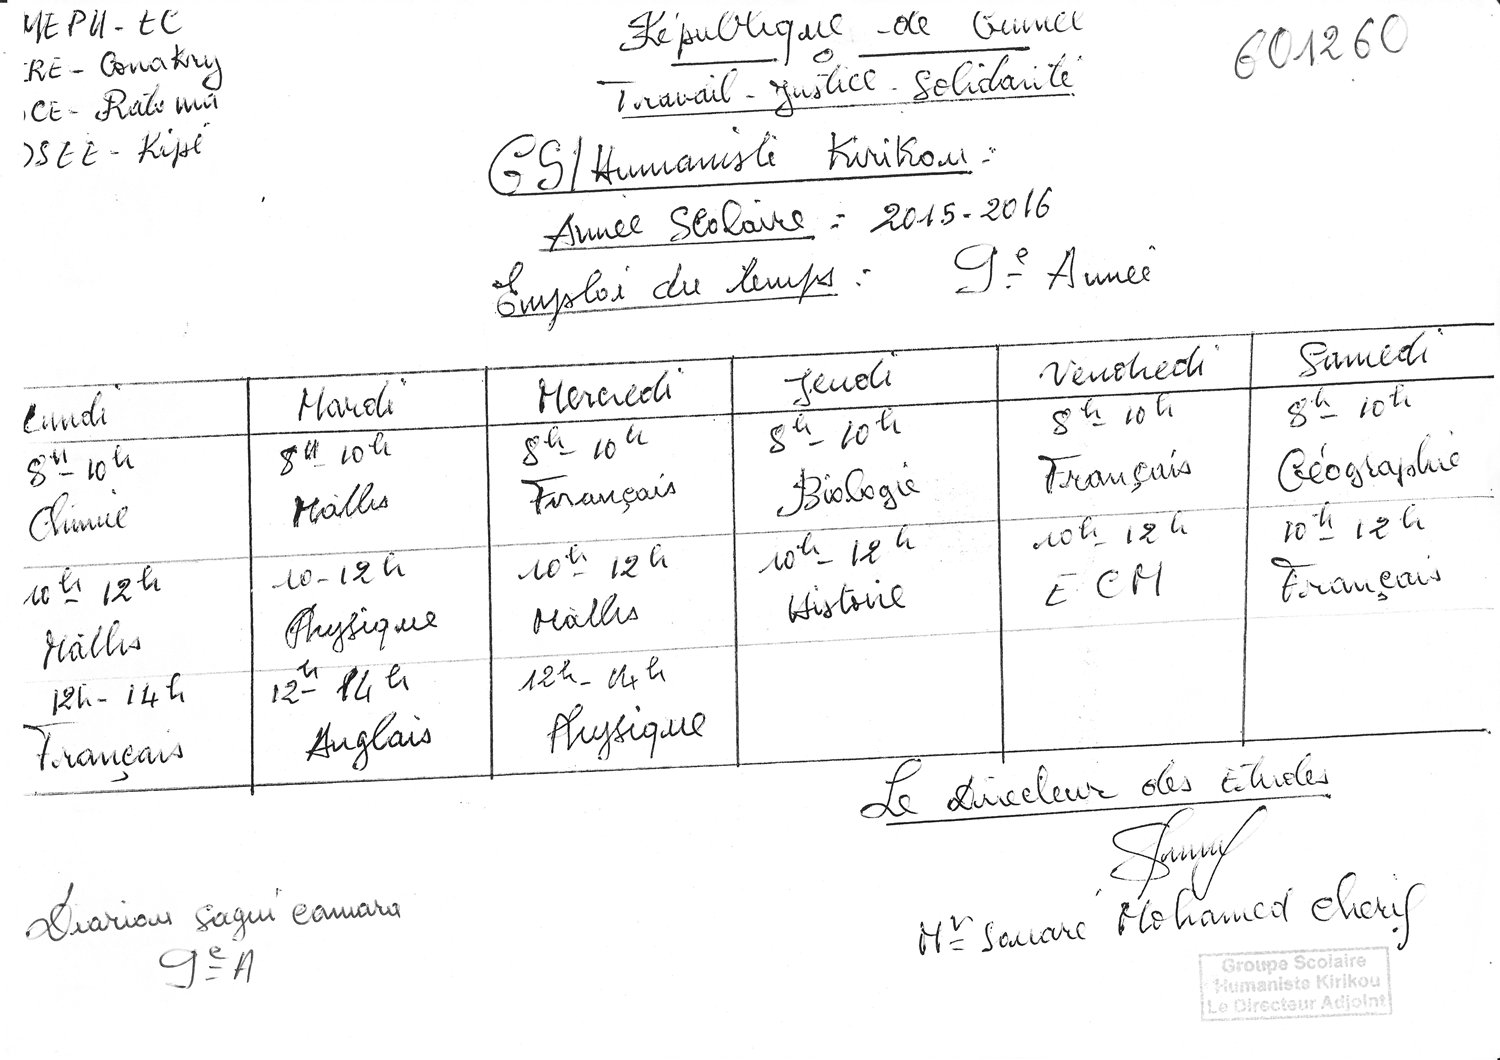 MEPU-EC
République de Guinée
601260
IRE - Conakry
Travail - Justice - Solidarité
DCE - Ratoma
DSEE - Kipé
GS/Humaniste Kirikou :
Année Scolaire : 2015-2016
Emploi du temps : 9e Année
Lundi Mardi Mercredi Jeudi Vendredi Samedi
8H-10h 8H-10h 8h-10h 8h-10h 8h-10h 8h-10h
Chimie Maths Français Biologie Français Géographie
10h-12h 10-12h 10h-12h 10h-12h 10h-12h 10h-12h
Maths Physique Maths Histoire ECM Français
12h-14h 12h-14h 12h-14h
Français Anglais Physique
Le Directeur des Etudes
Diariou Sagui Camara
9e A
Mr Souaré Mohamed Cherif
Groupe Scolaire
Humaniste Kirikou
Le Directeur Adjoint